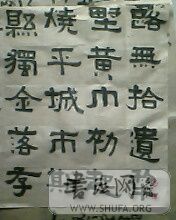 略無拾遺
野黃巾初
燒平城市
縣獨金落孝
書法网
WWW.SHUFA.ORG